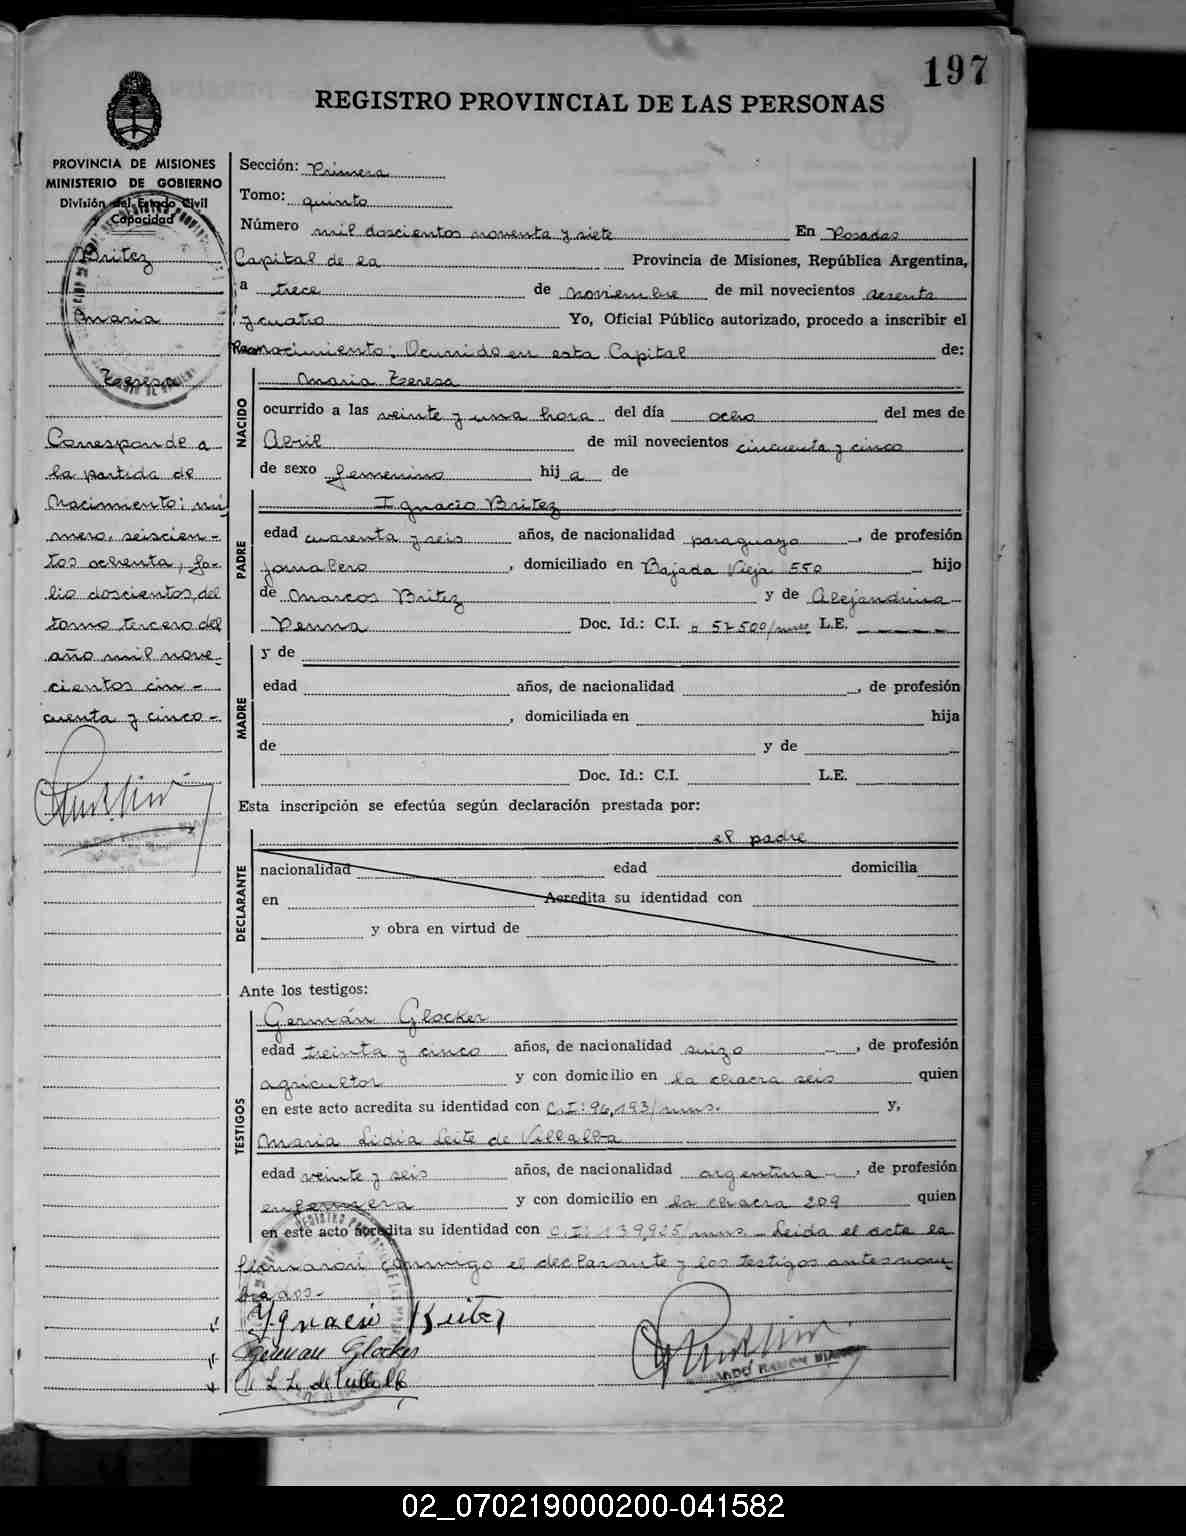 197
REGISTRO PROVINCIAL DE LAS PERSONAS
PROVINCIA DE MISIONES
MINISTERIO DE GOBIERNO
División del Estado Civil
Capacidad
Britez
Maria
Teresa
Corresponde a
la partida de
Nacimiento: nú
mero, seiscien-
tos ochenta, fo-
lio doscientos, del
tomo tercero del
año mil nove-
cientos cin-
cuenta y cinco-
Sección: Primera
Tomo: quinto
Número mil doscientos noventa y siete En Posadas
Capital de la Provincia de Misiones, República Argentina,
a trece de noviembre de mil novecientos sesenta
y cuatro Yo, Oficial Público autorizado, procedo a inscribir el
Reconocimiento: Ocurrido en esta Capital de:
NACIDO
Maria Teresa
ocurrido a las veinte y una hora del día ocho del mes de
Abril de mil novecientos cincuenta y cinco
de sexo femenino hij a de
PADRE
Ignacio Britez
edad cuarenta y seis años, de nacionalidad paraguayo, de profesión
jornalero, domiciliado en Bajada Vieja 550 hijo
de Marcos Britez y de Alejandrina
Penna Doc. Id.: C.I. 57500/mnes L.E.
MADRE
y de
edad años, de nacionalidad, de profesión
, domiciliada en hija
de y de
Doc. Id.: C.I. L.E.
Esta inscripción se efectúa según declaración prestada por:
DECLARANTE
el padre
nacionalidad edad domicilia
en Acredita su identidad con
y obra en virtud de
Ante los testigos:
TESTIGOS
Germán Glocker
edad treinta y cinco años, de nacionalidad suizo, de profesión
agricultor y con domicilio en la chacra seis quien
en este acto acredita su identidad con C.I: 96,193/mns. y,
Maria Lidia Leite de Villalba
edad veinte y seis años, de nacionalidad argentina, de profesión
enfermera y con domicilio en la chacra 209 quien
en este acto acredita su identidad con C.I: 139,925/mns. Leida el acta la
firmaron conmigo el declarante y los testigos antes nom
brados.-
Ygnacio Britez
German Glocker
L. L. de Villalba
RAMON
02_070219000200-041582